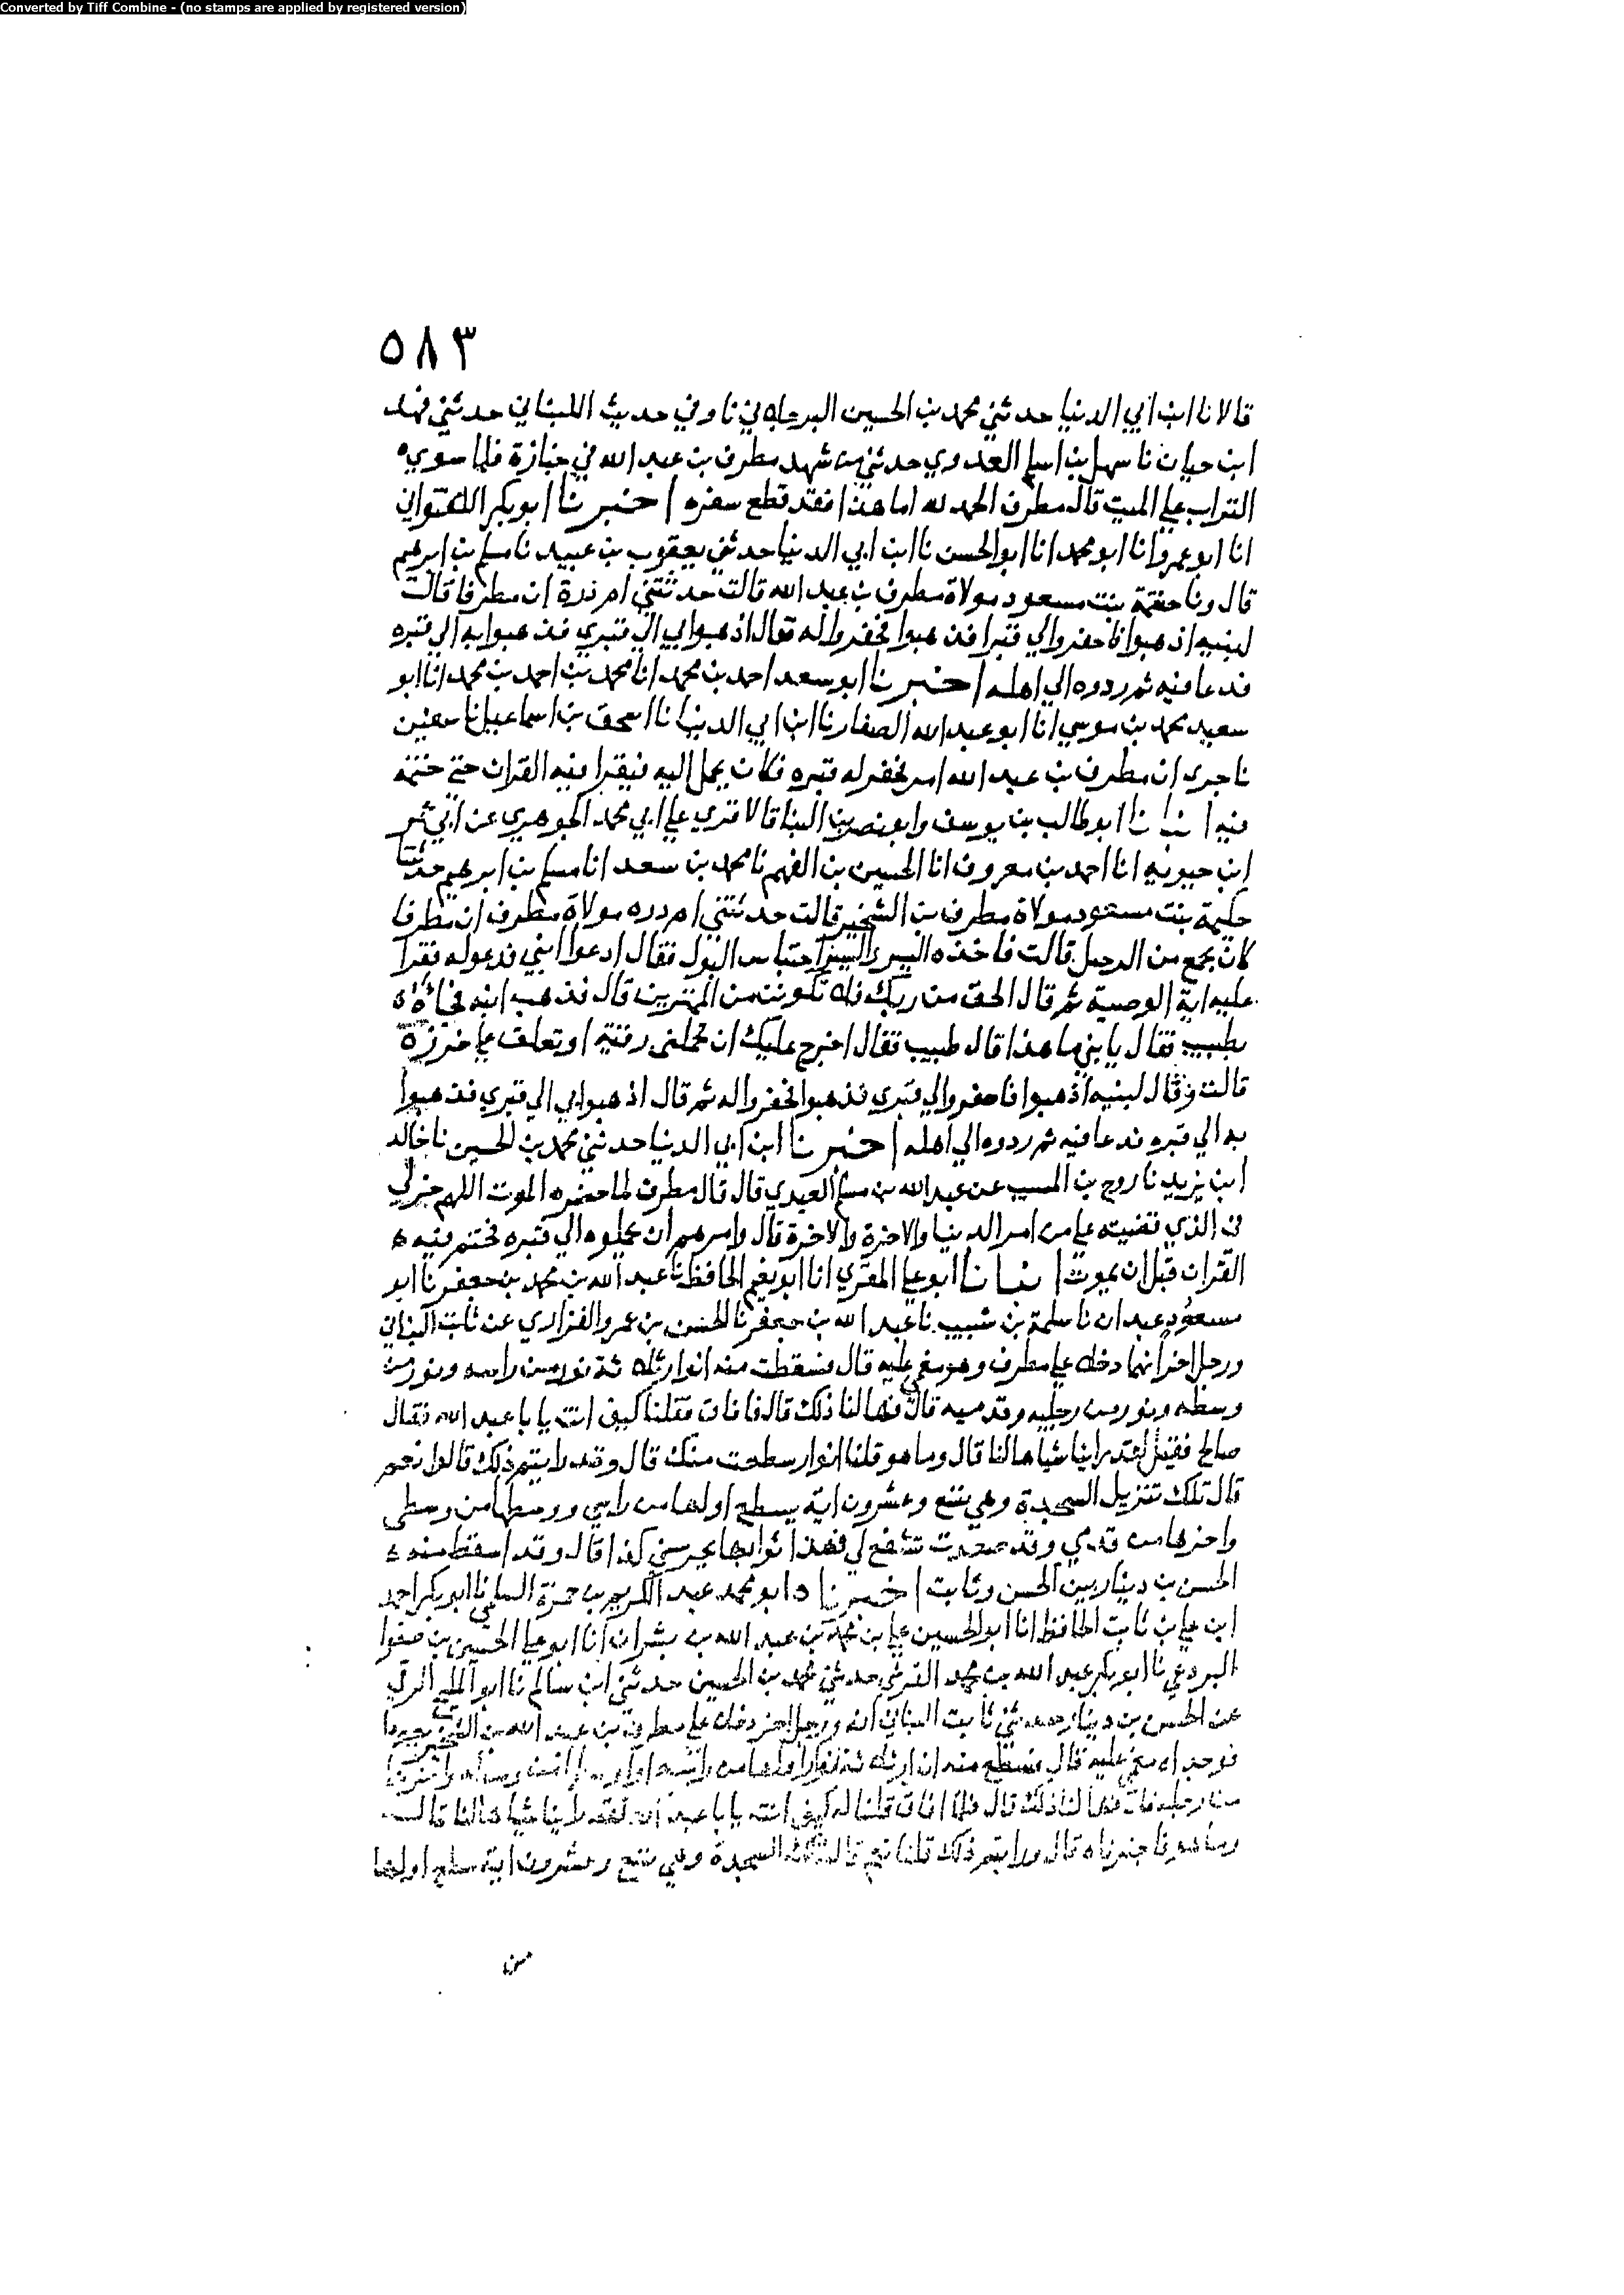 Converted by Tiff Combine - (no stamps are applied by registered version)
٥٨٣
قالا نا ابن ابي الدنيا حدثني محمد بن الحسين البرجلاني نا وفي حديث اللبناني حدثني فهد
ابن حيان نا سهل بن اسلم العدوي حدثني من شهد مطرف بن عبد الله في جنازة فلما سوي
التراب علي الميت قال مطرف الحمد لله اما هذا فقد قطع سفره اخبرنا ابو بكر اللفتواني
انا ابو عمرو انا ابو محمد انا ابو الحسن نا ابن ابي الدنيا حدثني يعقوب بن عبيد نا مسلم بن ابرهيم
قال ونا بنت مسعود مولاة مطرف بن عبد الله قالت حدثتني ام ذرة ان مطرفا قال
لبنيه اذهبوا فاحفروا لي قبرا فذهبوا فحفروا له فقال اذهبوا بي الي قبري فذهبوا به الي قبره
فدعا فيه ثم ردوه الي اهله اخبرنا ابو سعد احمد بن محمد انا محمد بن احمد بن محمد انا ابو
سعيد محمد بن موسي انا ابو عبد الله الصفار نا ابن ابي الدنيا نا اسحق بن اسماعيل نا سفين
نا ان مطرف بن عبد الله امر فحفر له قبره فكان يحمل اليه فيقرا فيه القران حتي ختمه
فيه انبانا ابو طالب بن يوسف وابو نصر بن البنا قالا قري علي ابي محمد الجوهري عن ابي عمر
ابن حيويه انا احمد بن معروف انا الحسين بن الفهم نا محمد بن سعد انا مسلم بن ابرهيم حدثتنا
حكيمة بنت مسعود مولاة مطرف بن الشخير قالت حدثتني ام دره مولاة مطرف ان مطرفا
كان يجمع من الرجل قالت فاخذه احتباس البول فقال ادعوا ابني فدعوله فقرا
عليه اية الوصية ثم قال الحق من ربك فلا تكونن من الممترين قال فذهب ابنه فجاه
بطبيب فقال يا بني ما هذا قال طبيب فقال احرج عليك ان تحملني رقية او تعلق علي خرزة
قالت وقال لبنيه اذهبوا فاحفروا لي قبري فذهبوا فحفروا له ثم قال اذهبوا بي الي قبري فذهبوا
به الي قبره فدعا فيه ثم ردوه الي اهله اخبرنا ابن ابي الدنيا حدثني محمد بن الحسين نا خالد
ابن يزيد نا روح بن المسيب عن عبد الله بن مسلم العبدي قال قال مطرف لما حضره الموت اللهم خر لي
في الذي قضيته علي من امر الدنيا والاخرة والاخرة قال وامرهم ان يحملوه الي قبره فختم فيه
القران قبل ان يموت انبانا ابو علي المقري انا ابو نعيم الحافظ نا عبد الله بن محمد بن جعفر نا ابو
مسعود عبدان نا سلمة بن شبيب نا عبد الله بن جعفر نا الحسن بن عمرو الفزاري عن ثابت البناني
ورجل اخر انهما دخلا علي مطرف وهو مغمي عليه قال فسقطت منه انوار ثلثة نور من راسه ونور من
وسطه ونور من رجليه وقدميه قال فهالنا ذلك قال فافاق فقلنا كيف انت يابا عبد الله فقال
صالح فقيل لقد راينا شيا هالنا قال وما هو قلنا انوار سطعت منك قال وقد رايتم ذلك قالوا نعم
قال تلك تنزيل السجدة وهي تسع وعشرون اية يسطع اولها من راسي ووسطها من وسطي
واخرها من قدمي وقد صعدت تشفع لي فهذا ثوابها يحرسني كذا قال وقد اسقط منه
الحسن بن دينار بين الحسن وثابت اخبرنا ابو محمد عبد الكريم بن حمزة السلمي نا ابو بكر احمد
ابن علي بن ثابت الحافظ انا ابو الحسين علي بن محمد بن عبد الله بن بشران انا ابو علي الحسين بن صفوا
البردعي نا ابو بكر عبد الله بن محمد القرشي حدثني محمد بن الحسين حدثني ابن سالم نا ابو المليح الرقي
عن الحسن بن دينار حدثني ثابت البناني انه ورجل اخر دخلا علي مطرف بن عبد الله بن الشخير
فوجداه مغمي عليه قال فسطع منه انوار ثلثة
من رجليه قال فهالنا ذلك قال فلما افاق قلنا له كيف انت يابا عبد الله لقد راينا شيا هالنا قال
وما هو فاخبرناه قال ورايتم ذلك قلنا نعم قال تلك السجدة وهي تسع وعشرون اية سطع اولها
من